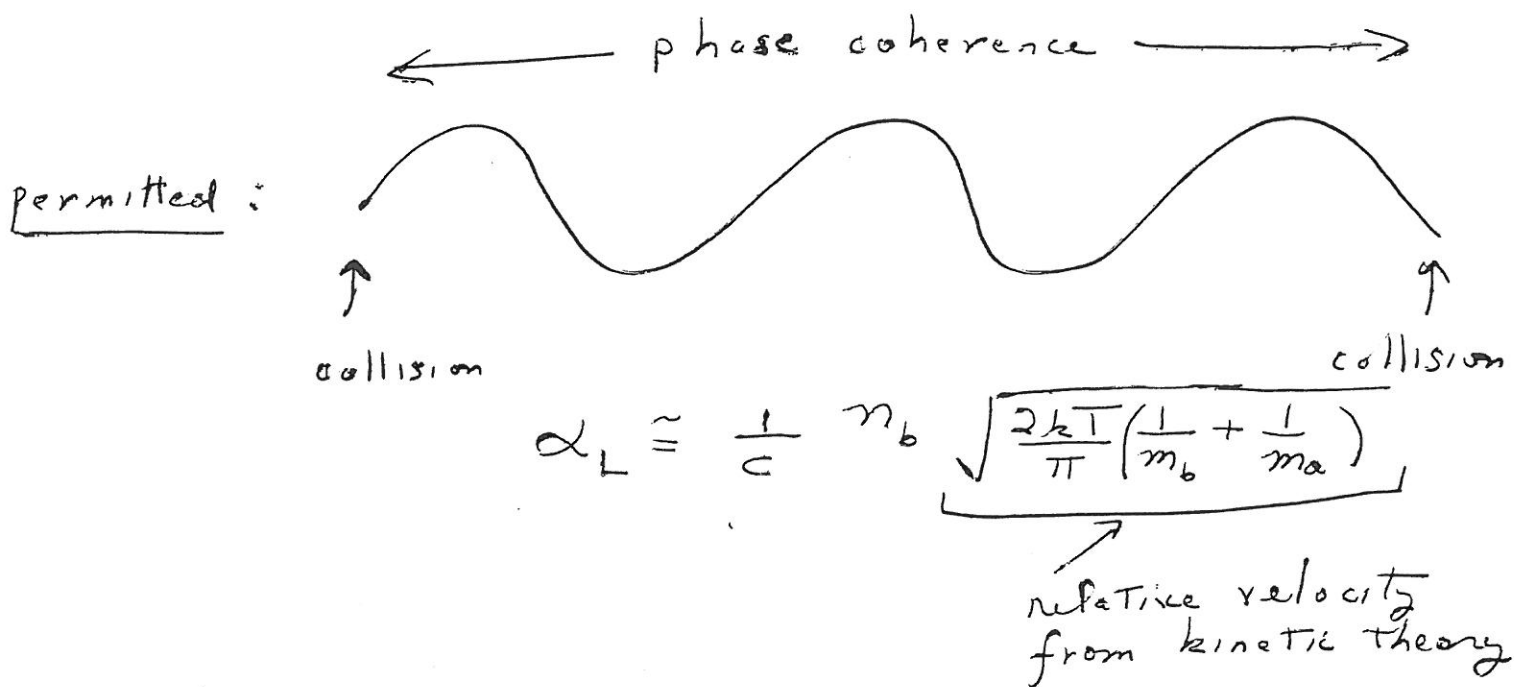 phase coherence
permitted :
collision
collision
α_L ≅ 1/c n_b √(2kT/π (1/m_b + 1/m_a))
relative velocity
from kinetic theory